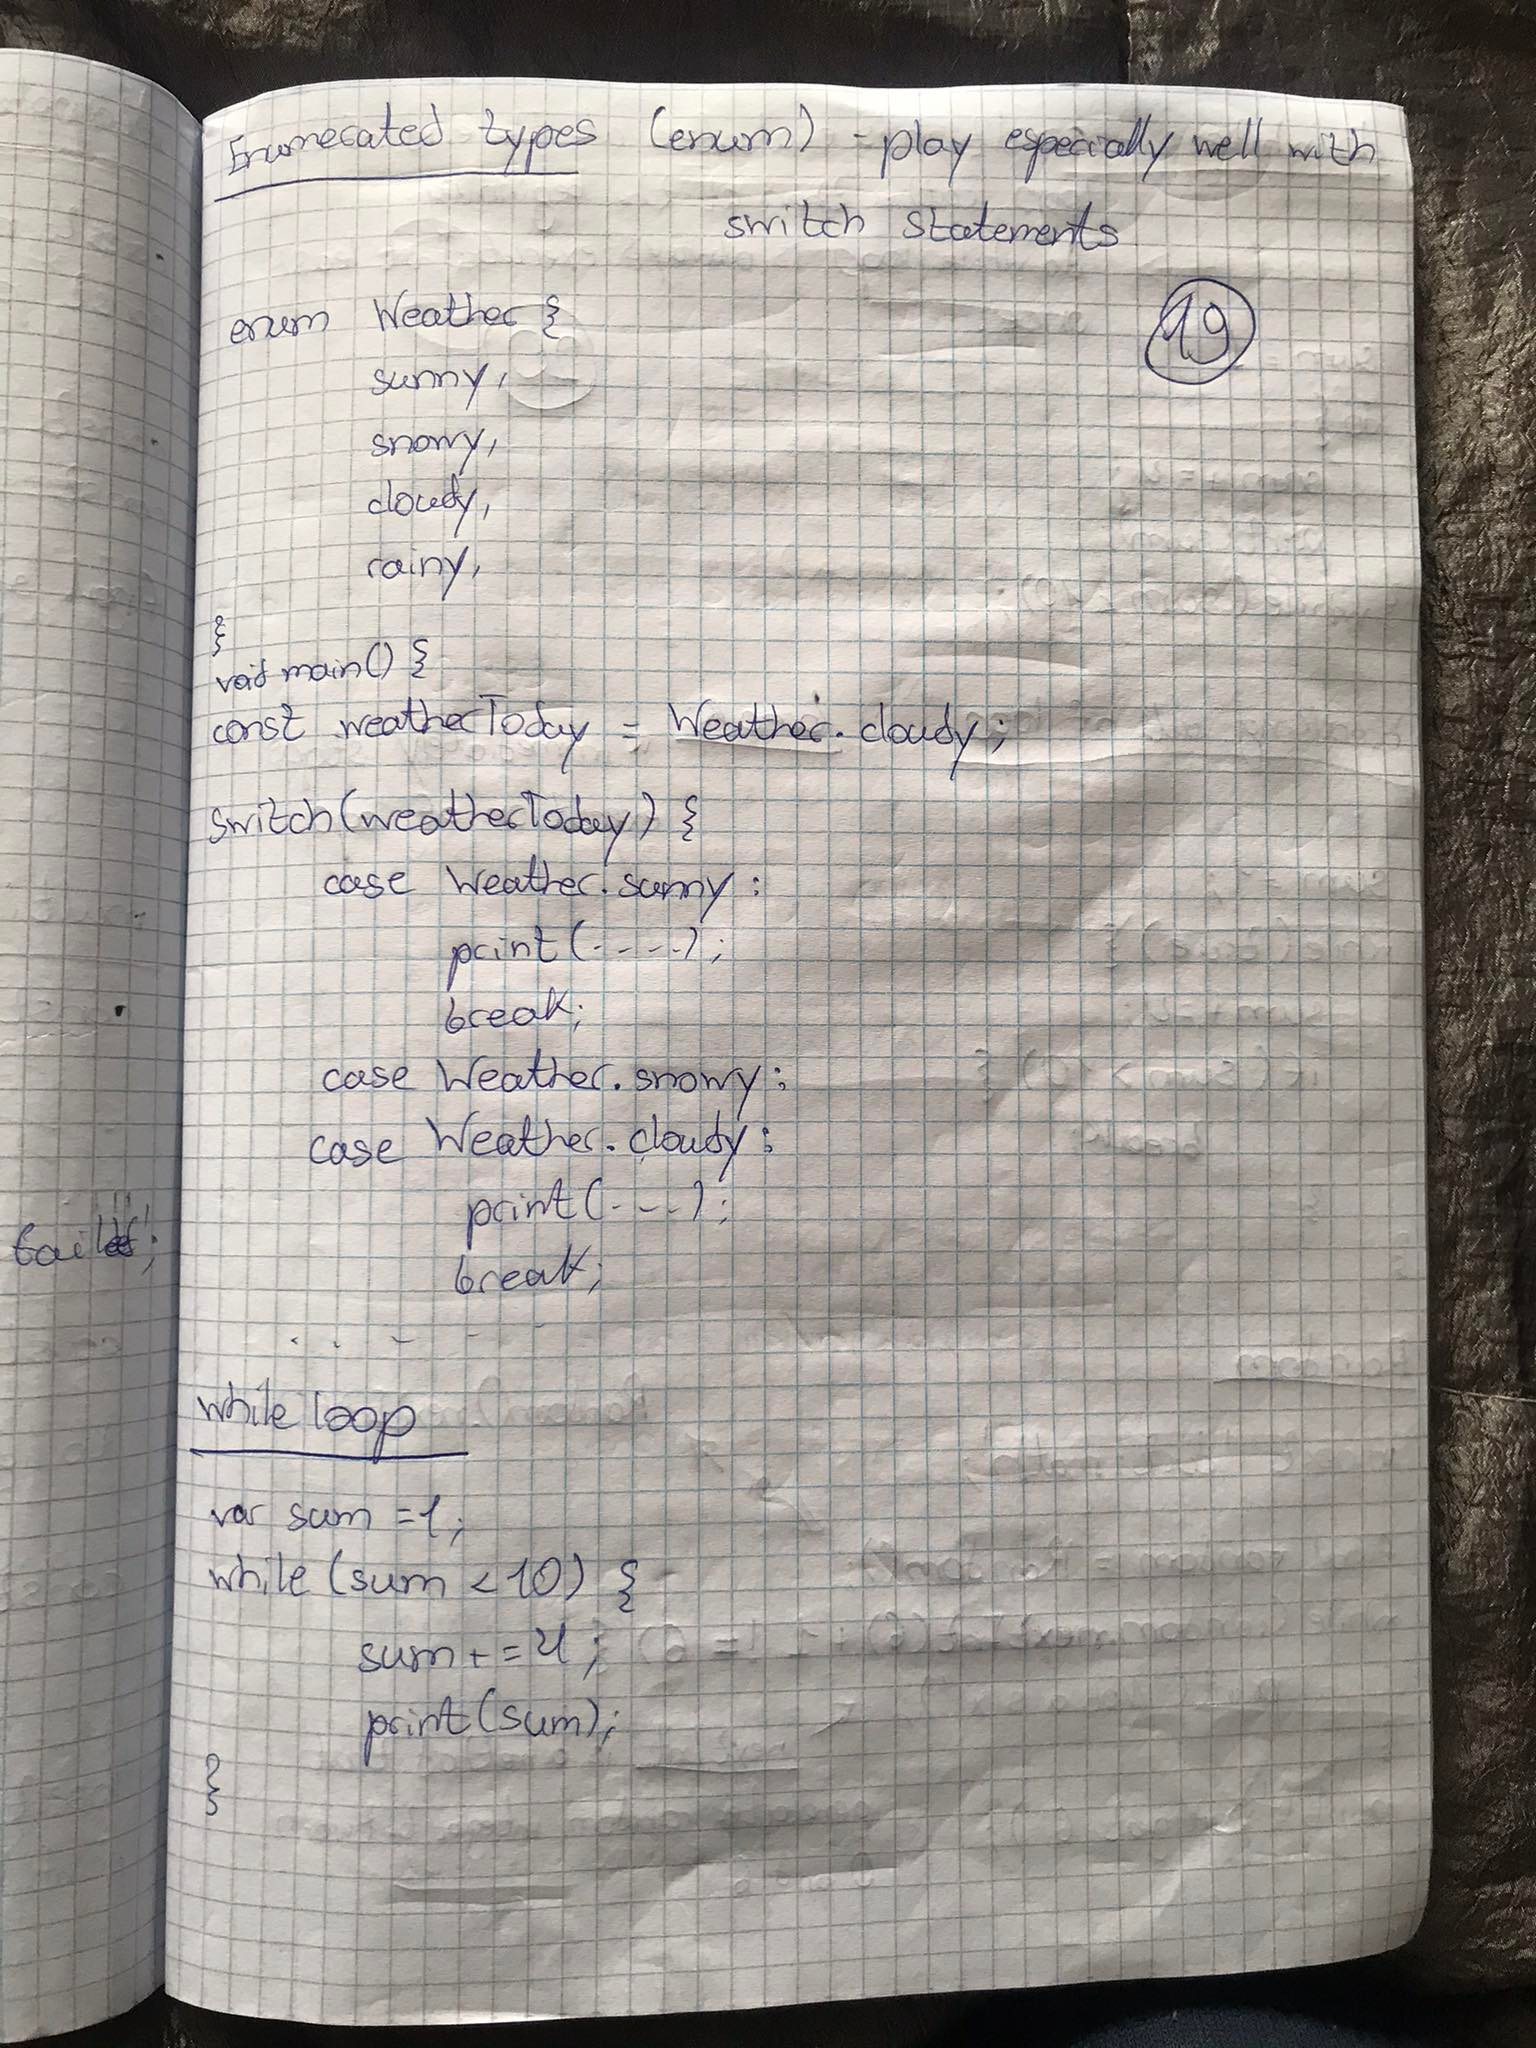 Enumerated types (enum) - play especially well with
switch statements
19
enum Weather {
sunny,
snowy,
cloudy,
rainy,
}
void main() {
const weatherToday = Weather.cloudy;
switch(weatherToday) {
case Weather.sunny:
print(----);
break;
case Weather.snowy:
case Weather.cloudy:
print(---);
break;
.....
while loop
var sum = 1;
while (sum < 10) {
sum += 4;
print(sum);
}